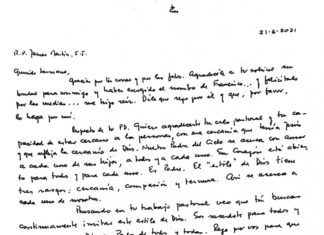 21-6-2021
R.P. James Martin, S.J.
Querido hermano,
Gracias por tu correo y por las fotos. Agradecele a tu sobrino su
bondad para conmigo y haber escogido el nombre de Francisco... y felicitalo
por las medias... me hizo reír. Dile que rezo por él y que, por favor,
lo haga por mí.
Respecto de tu PD. Quiero agradecerte tu celo pastoral y tu ca-
pacidad de estar cercano a las personas, con esa cercanía que tenía Jesús
y que refleja la cercanía de Dios. Nuestro Padre del Cielo se acerca con amor
a cada uno de sus hijos, a todos y a cada uno. Su corazón está abier-
to para todos y para cada uno. Es Padre. El "estilo" de Dios tiene
tres rasgos: cercanía, compasión y ternura. Así se acerca a
cada uno de nosotros.
Pensando en tu trabajo pastoral veo que tú buscas
continuamente imitar este estilo de Dios. Sos sacerdote para todos y
Padre de todos y todas. Rezo por vos para que